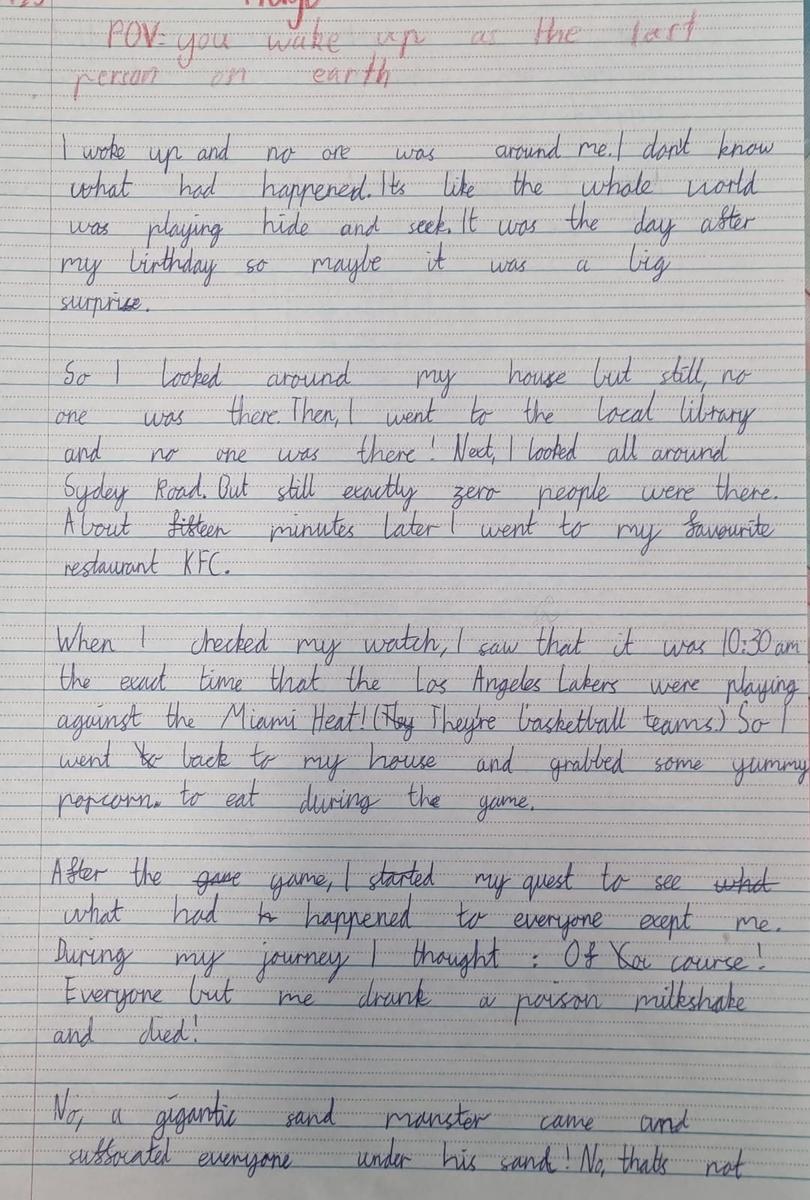 POV: you wake up as the last
person on earth
I woke up and no one was around me. I don't know
what had happened. Its like the whole world
was playing hide and seek. It was the day after
my birthday so maybe it was a big
surprise.
So I looked around my house but still, no
one was there. Then, I went to the local library
and no one was there! Next, I looked all around
Sydey Road. But still exactly zero people were there.
About fifteen minutes later I went to my favourite
restaurant KFC.
When I checked my watch, I saw that it was 10:30am
the exact time that the Los Angeles Lakers were playing
against the Miami Heat! (They They're basketball teams.) So I
went to back to my house and grabbed some yummy
popcorn. to eat during the game.
After the game game, I started my quest to see what
what had h happened to everyone exept me.
During my journey I thought : Of course!
Everyone but me drank a poison milkshake
and died!
No, a gigantic sand manster came and
suffocated everyone under his sand! No, thats not